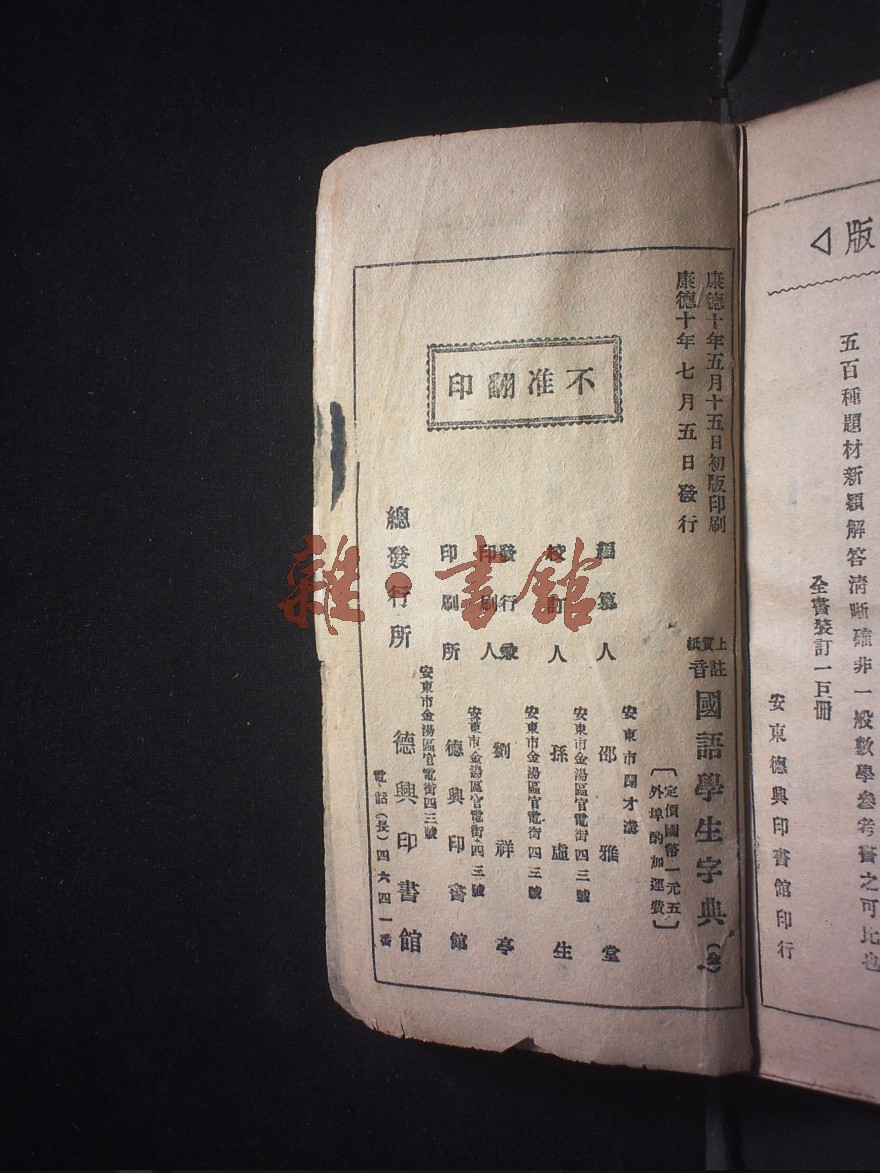 版 ◁
五百種題材新穎解答清晰確非一般數學參考書之可比也
全書裝訂一巨冊
安東德興印書館印行
康德十年五月十五日初版印刷
康德十年七月五日發行
不准翻印
上質紙
註音
國語學生字典(全)
〔定價國幣一元五
外埠酌加運費〕
安東市開才溝
編纂人 邵雅堂
安東市金湯區官電街四三號
校訂人 孫虛生
安東市金湯區官電街四三號
發行兼
印刷人 劉祥亭
安東市金湯區官電街四三號
印刷所 德興印書館
安東市金湯區官電街四三號
總發行所 德興印書館
電話(長)四六四一番
雜·書館